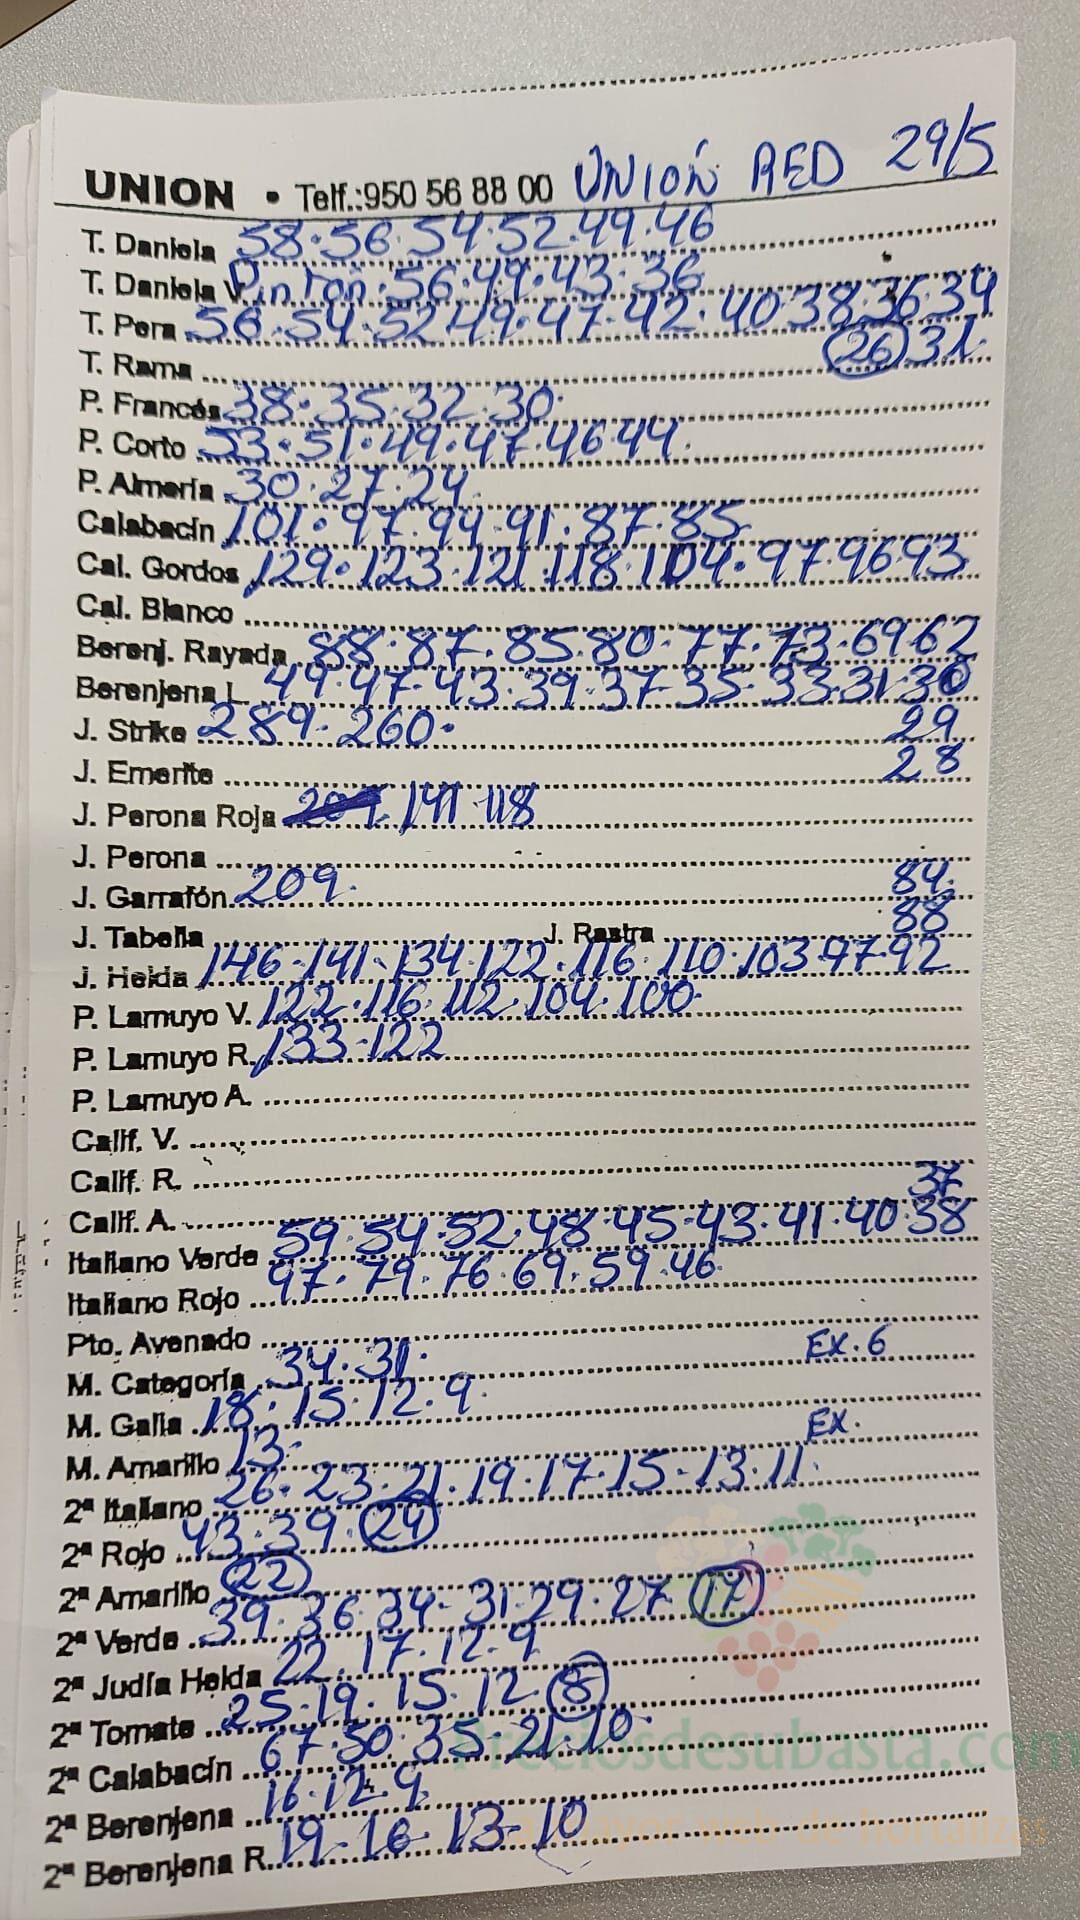 UNION • Telf.:950 56 88 00 UNIÓN RED 29/5
T. Daniela 58·56·54·52·49·46
T. Daniela V. Pintón·56·49·43·36
T. Pera 56·54·52·49·47·42·40·38·36·34
T. Rama (26) 31
P. Francés 38·35·32·30·
P. Corto 53·51·49·47·46·44·
P. Almería 30·27·24
Calabacín 101·97·94·91·87·85
Cal. Gordos 129·123·121·118·104·97·96·93
Cal. Blanco
Berenj. Rayada 88·87·85·80·77·73·69·62
Berenjena L. 49·47·43·39·37·35·33·31·30
J. Strike 289·260· 29
J. Emerite 28
J. Perona Roja 209 141·118
J. Perona
J. Garrafón 209· 84
J. Tabella J. Rastra 88
J. Helda 146·141·134·122·116·110·103·97·92
P. Lamuyo V. 122·116·112·104·100·
P. Lamuyo R. 133·122
P. Lamuyo A.
Calif. V.
Calif. R. 37
Calif. A.
Italiano Verde 59·54·52·48·45·43·41·40·38
Italiano Rojo 97·79·76·69·59·46·
Pto. Avenado
M. Categoría 34·31· Ex. 6
M. Galia 18·15·12·9·
M. Amarillo 13· Ex.
2ª Italiano 26·23·21·19·17·15·13·11·
2ª Rojo 43·39·(24)
2ª Amarillo (22)
2ª Verde 39·36·34·31·29·27 (17)
2ª Judía Helda 22·17·12·9
2ª Tomate 25·19·15·12·(8)
2ª Calabacín 67·50·35·21·10·
Preciosdesubasta.com
2ª Berenjena 16·12·9
2ª Berenjena R. 19·16·13·10
mayor web de hortalizas